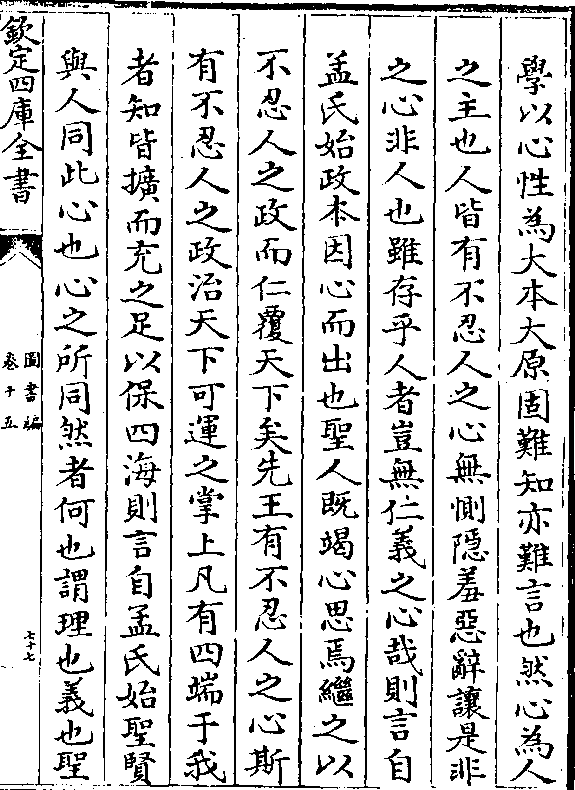 學以心性為大本大原固難知亦難言也然心為人
之主也人皆有不忍人之心無惻隱羞惡辭讓是非
之心非人也雖存乎人者豈無仁義之心哉則言自
孟氏始政本因心而出也聖人既竭心思焉繼之以
不忍人之政而仁覆天下矣先王有不忍人之心斯
有不忍人之政治天下可運之掌上凡有四端于我
者知皆擴而充之足以保四海則言自孟氏始聖賢
與人同此心也心之所同然者何也謂理也義也聖
欽定四庫全書
圖書編
卷十五
七十七